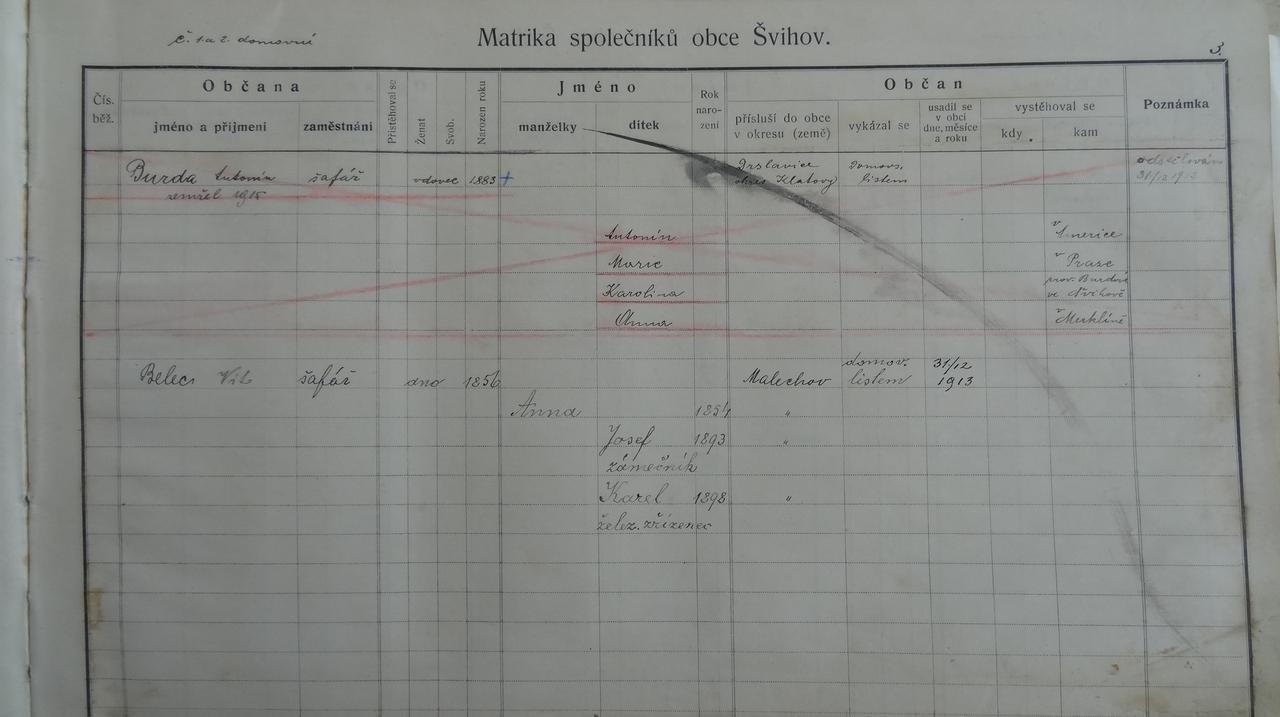 č. 1 a 2. domovní
Matrika společníků obce Švihov.
3.
Čís. běž.
Občana
jméno a přijmení
zaměstnání
Přistěhoval se
Ženat
Svob.
Narozen roku
Jméno
manželky
dítek
Rok naro-zení
Občan
přísluší do obce v okresu (země)
vykázal se
usadil se v obci dne, měsíce a roku
vystěhoval se
kdy
kam
Poznámka
Burda Antonín šafář vdovec 1883 + okres Klatovy domovs. listem odstěhován 31/12 1912
zemřel 1915
Antonín v Americe
Marie v Praze
Karolina prov. Burdová ve Švihově
Anna v Merklíně
Belec Vít šafář ano 1856 Malechov domov. listem 31/12 1913
Anna 1854 "
Josef 1893 "
zámečník
Karel 1898 "
želez. zřízenec